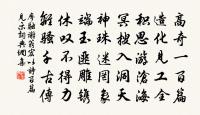 高奇一百篇
造化見工全
積思游滄海
冥搜入洞天
神珠迷罔象
端玉匪雕鐫
休嘆不得力
離騷千古傳
廖融謝翁宏以詩百篇
見示詞典網集